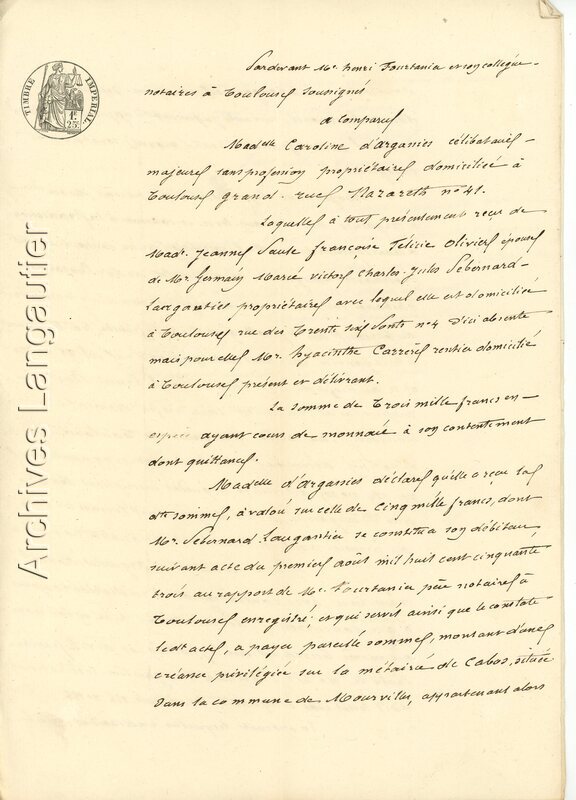 TIMBRE IMPERIAL
1F 25C
Pardevant Me. henri Fourtanié et son collègue
notaires à Toulouse soussignés
a Comparu
Madelle Caroline d'Argassies célibataire
majeure sans profession propriétaire domiciliée à
Toulouse grand. rue Nazareth no 41.
Laquelle à tout présentement reçu de
Made. Jeanne Paule françoise Félicie Olivier épouse
de Mr. Germain Marie Victor Charles Jules Lebernard
Langautier propriétaire avec lequel elle est domiciliée
à Toulouse rue des Trente six Ponts no 4 d'ici absente
mais pour elle Mr. hyacinthe Carrère rentier domicilié
à Toulouse présent et délivrant.
La somme de Trois mille francs en
espèce ayant cours de monnaie à son contentement
dont quittance.
Madelle d'Argassies déclare qu'elle a reçu la
dte somme, à valoir sur celle de Cinq mille francs, dont
Mr. Lebernard Langautier se constitua son débiteur
suivant acte du premier août mil huit cent cinquante
trois au rapport de Me. Fourtanié père notaire à
Toulouse enregistré; et qui servit ainsi que le constate
ledt acte, a payer pareille somme, montant d'une
créance privilégiée sur la métairie de Cabos, située
dans la commune de Mourvilles, appartenant alors
Archives Langautier